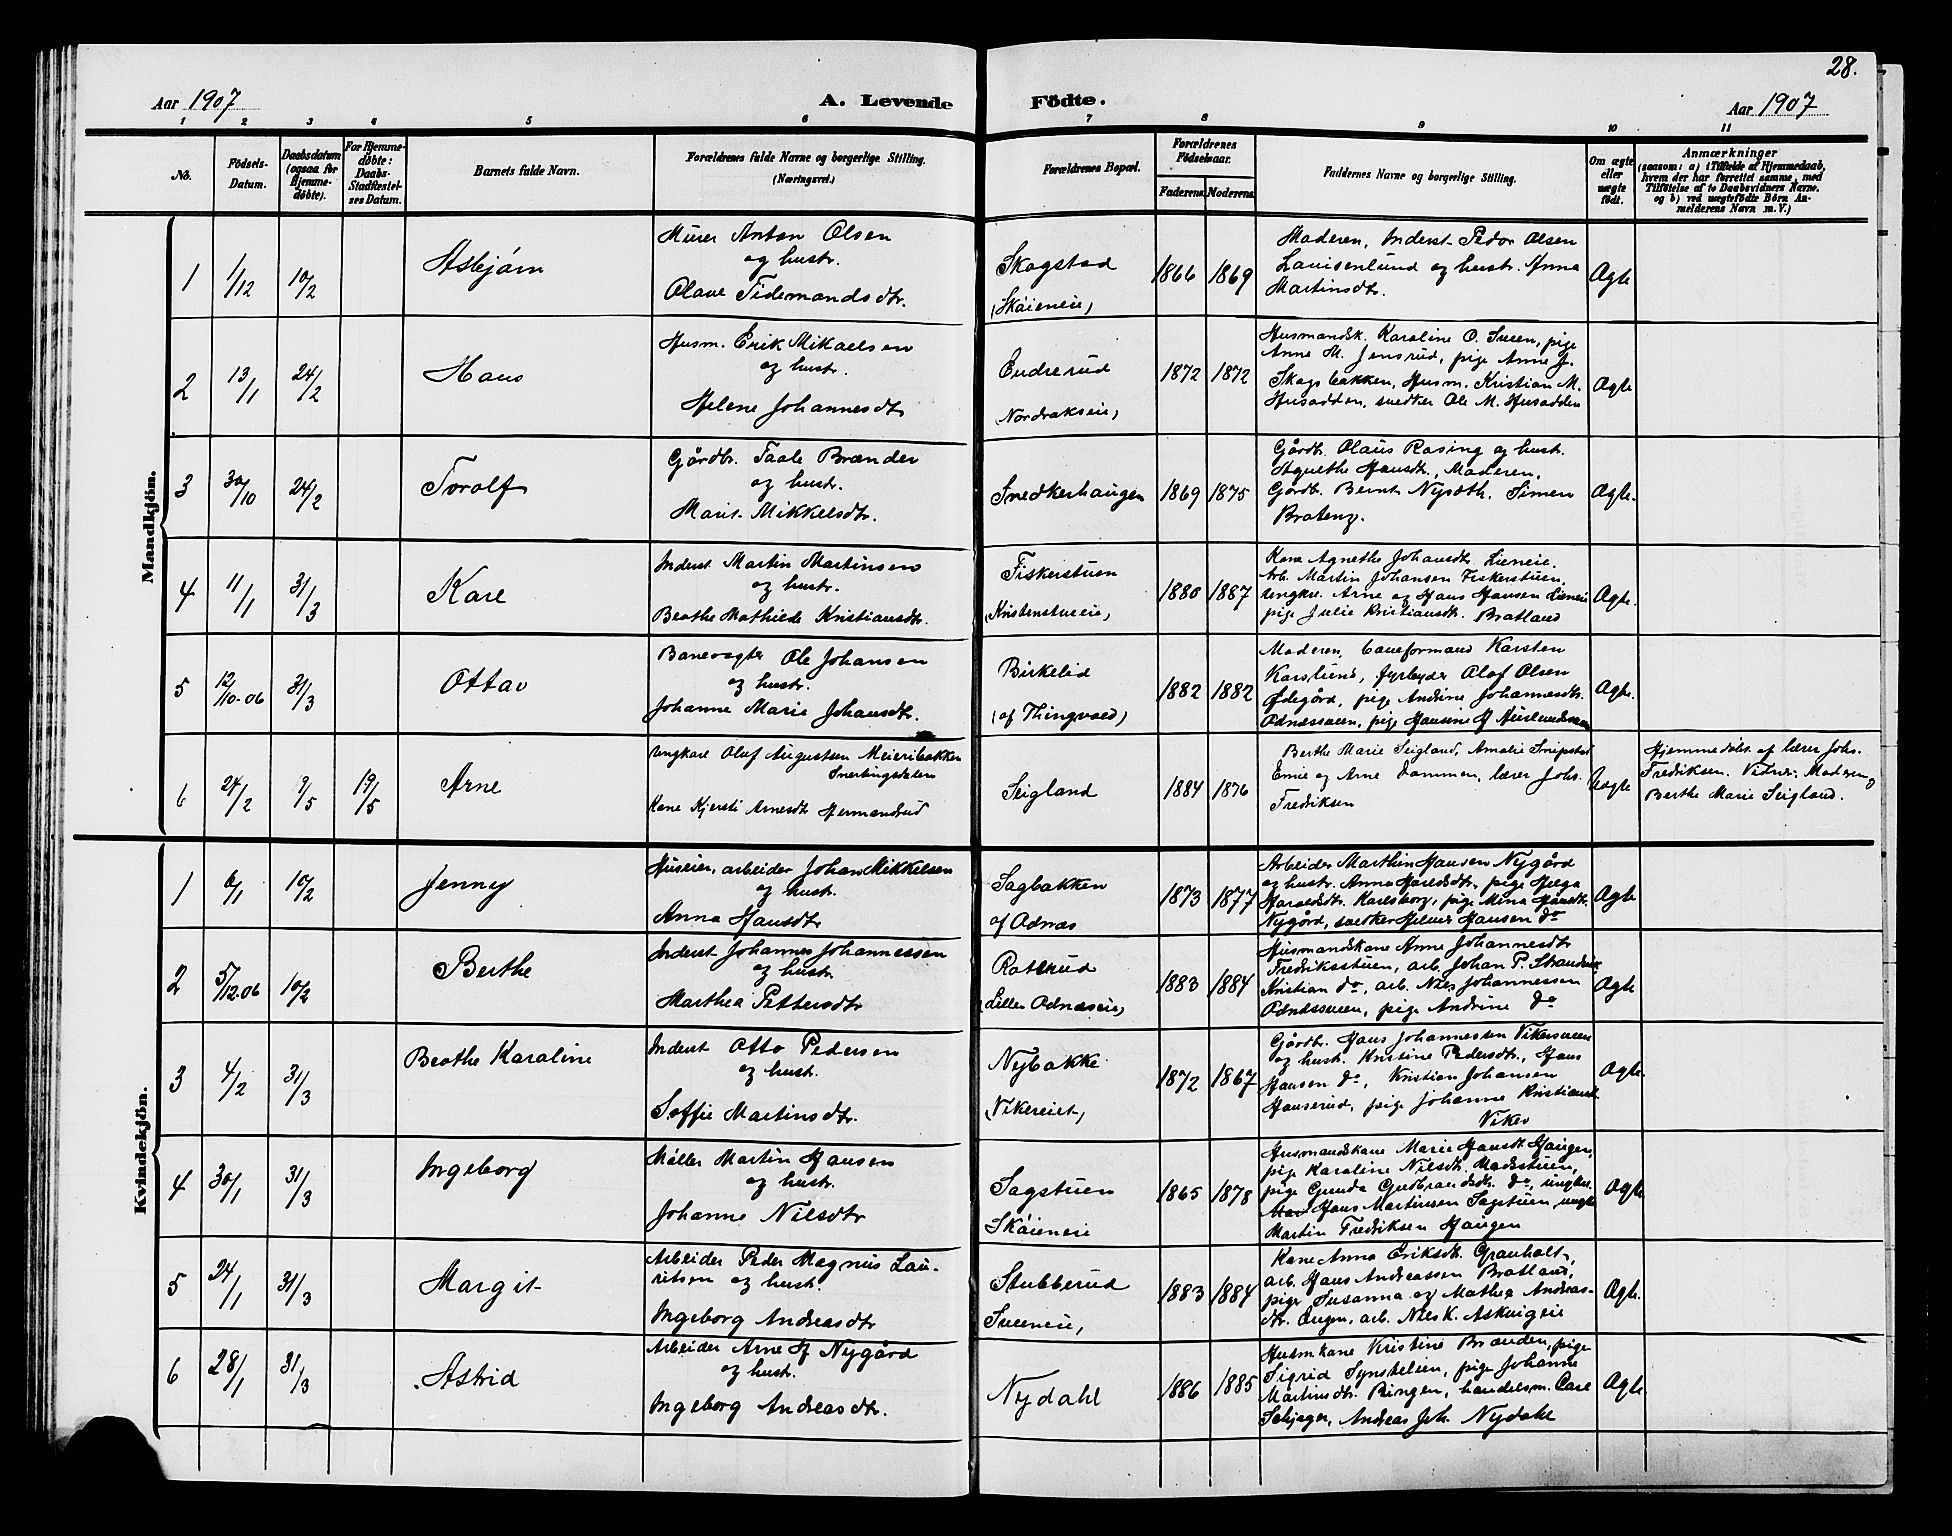 28.
Aar 1907
A. Levende Födte.
Aar 1907
1 2 3 4 5 6 7 8 9 10 11
No.
Födsels-Datum.
Daabsdatum (ogsaa for Hjemmedøbte).
For Hjemmedøbte: Daabs-Stadfæstelses Datum.
Barnets fulde Navn.
Forældrenes fulde Navne og borgerlige Stilling. (Næringsvei.)
Forældrenes Bopæl.
Forældrenes Födselsaar.
Faderens. Moderens.
Faddernes Navne og borgerlige Stilling.
Om ægte eller uægte født.
Anmærkninger
(saasom: a) i Tilfælde af Hjemmedaab, hvem der har forrettet samme, med Tilföielse af to Daabsvidners Navne. og b) ved uægtefødte Börn Anmelderens Navn m. V.)
Mandkjön.
1 1/12 10/2 Asbjørn
Murer Anton Olsen
og hustr.
Olave Tidemandsdtr.
Skogstad
(Skøieneie)
1866 1869
Moderen, Inderst Peder Olsen
Louisenlund og hustr. Anna
Martinsdtr.
Ægte
2 13/1 24/2 Hans
Husm. Erik Mikaelsen
og hustr.
Helene Johannesdtr
Endrerud
Nordrakseie)
1872 1872
Husmandsk. Karoline O. Sveen, pige
Anne M. Jensrud, pige Anne J.
Skogsbakken, Husm. Kristian M.
Husodden, snedker Ole M. Husodden
Ægte
3 30/10 24/2 Torolf
Gårdbr. Taale Brænden
og hustr.
Marit Mikkelsdtr.
Snedkerhaugen
1869 1875
Gårdbr. Olaus Rosing og hustr.
Agnethe Hansdtr., Moderen,
Gårdbr. Bernt Nyseth. Simen
Brateng.
Ægte.
4 11/1 31/3 Kåre
Inderst Martin Martinsen
og hustr.
Beathe Mathilde Kristiansdtr.
Fiskerstuen
(Kristenstueeie)
1880 1887
Kone Agnethe Johansdtr. Lieneie.
Arb. Martin Johansen Fiskerstuen,
ungkr. Arne og Hans Hansen Lieneie
pige Julie Kristiansdtr. Bratland
Ægte.
5 12/10-06 31/3 Ottar
Banevogter Ole Johansen
og hustr.
Johanne Marie Johansdtr.
Birkelid
(af Thingvold)
1882 1882
Moderen, baneformand Karsten
Karslund, fyrbøder Olaf Olsen
Ødegård, pige Andrine Johannesdtr.
Odnæssveen, pige Hansine H.
Ægte.
6 24/2 9/5 19/5 Arne
Ungkarl Oluf Augustsen Meieribakken
Snertingdalen
Kone Kjersti Arnesdtr Hermandrud
Seigland
1884 1876
Berthe Marie Seigland, Amalie Snipstad
Emie og Arne Dammen, lærer Johs.
Fredriksen
Uægte
Hjemmedøbt af lærer Johs.
Fredriksen. Vidner: Moderen og
Berthe Marie Seigland.
Kvindekjön.
1 6/1 10/2 Jenny
Huseier, arbeider Johan Mikkelsen
og hustr.
Anna Hansdtr
Sagbakken
af Odnæs
1873 1877
Arbeider Marthin Hansen Nygård
og hustr. Anna Haraldsdtr, pige Helga
Haraldsdtr. Karlsborg, pige Mina Hansdtr.
Nygård, snedker Helmer Hansen do
Ægte
2 5/12.06 10/2 Berthe
Inderst Johannes Johannessen
og hustr
Marthea Pettersdtr
Roterud
(Lille Odnæseie)
1883 1884
Husmandskone Anne Johannesdtr
Fredriksstuen, arb. Johan P.
Kristian do, arb. Nils Johannessen
Odnæssveen, pige Andrine do
Ægte
3 4/2 31/3 Beathe Karoline
Inderst Otto Pedersen
og hustr.
Soffie Martinsdtr.
Nybakke
(Vikereiet)
1872 1867
Gårdbr. Hans Johannessen Vikersveen
og hustr. Kristine Pedersdtr., Hans
Hansen do, Kristian Johansen
Hanserud, pige Johanne Kristiansdtr
Viker
Ægte.
4 30/1 31/3 Ingeborg
Møller Martin Hansen
og hustr.
Johanne Nilsdtr
Sagstuen
Skøieneie
1865 1878
Husmandskone Marie Hansdtr Haugen,
pige Karoline Nilsdtr. Madsstuen,
pige Gunda Gudbrandsdtr. do, ungkr.
Hans Martinsen Sagstuen, ungkr
Martin Fredriksen Haugen
Ægte
5 24/1 31/3 Margit
Arbeider Peder Magnus Lau-
ritsen og hustr.
Ingeborg Andreasdtr
Stubberud
Sveeneie,
1883 1884
Kone Anna Eriksdtr. Granholt,
arb. Hans Andreassen Bratland,
pige Susanna og Mathea Andreas-
dtr. Engen, arb. Nils K. Askvigeie
Ægte.
6 28/1 31/3 Astrid
Arbeider Arne H Nygård
og hustr.
Ingeborg Andreasdtr.
Nydahl
1886 1885
Husmkone Kristine Brænden, pige
Sigrid Synstelien, pige Johanne
Martinsdtr. Ringen, handelsm. Carl
Andreas Joh. Nydahl
Ægte